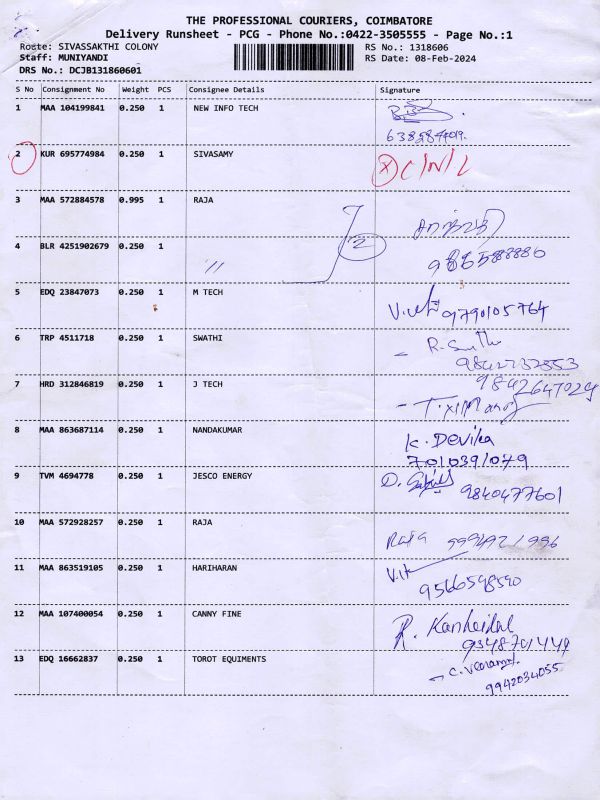 THE PROFESSIONAL COURIERS, COIMBATORE
Delivery Runsheet - PCG - Phone No.:0422-3505555 - Page No.:1
Route: SIVASSAKTHI COLONY RS No.: 1318606
Staff: MUNIYANDI RS Date: 08-Feb-2024
DRS No.: DCJB131860601
S No Consignment No Weight PCS Consignee Details Signature
1 MAA 104199841 0.250 1 NEW INFO TECH
2 KUR 695774984 0.250 1 SIVASAMY X C/N/L
3 MAA 572884578 0.995 1 RAJA
2
4 BLR 4251902679 0.250 1 "
5 EDQ 23847073 0.250 1 M TECH 9790105764
6 TRP 4511718 0.250 1 SWATHI
9842737553
7 HRD 312846819 1 J TECH 9842647029
8 MAA 863687114 0.250 1 NANDAKUMAR K. Devika
7010391079
9 TVM 4694778 0.250 1 JESCO ENERGY D. 9840477601
10 MAA 572928257 0.250 1 RAJA Raja
11 MAA 863519105 0.250 1 HARIHARAN
9566598590
12 MAA 107400054 0.250 1 CANNY FINE R.
9348701449
13 EDQ 16662837 0.250 1 TOROT EQUIMENTS C.
9942034055